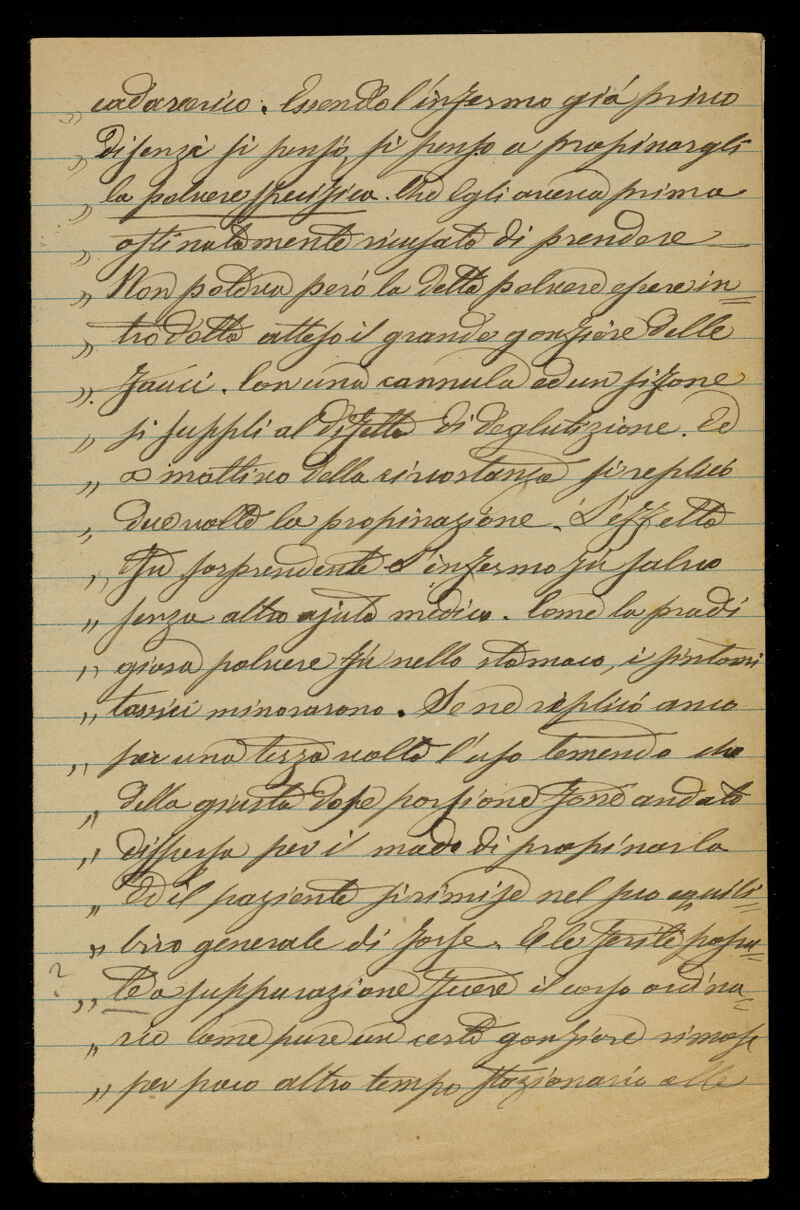 „ cadaverico. Essendo l'infermo già privo
„ di sensi si pensò, si penso a propinargli
„ la polvere specifica. Che Egli aveva prima
„ ostinatamente ricusato di prendere
„ Non poteva però la detta polvere essere in=
„ trodotta atteso il grande gonfiore delle
„ fauci. Con una cannula ed un sifone
„ si supplì al difetto di deglutizione. Ed
„ mattino della circostanza si replicò
„ due volte la propinazione. L'effetto
„ fu sorprendente L'infermo fù salvo
„ senza altro ajuto medico. Come la prodi
„ giosa polvere fù nello stomaco, i sintomi
„ tossici minorarono. Se ne replicò anco
„ per una terza volta l'uso temendo che
„ della giusta dose porzione fosse andato
„ dispersa per il modo di propinarla
„ Ed il paziente si rimise nel suo equili=
„ brio generale di forse. E le ferite passa=
? „ te a suppurazione fecere il corso ordina=
„ rio Come pure un certo gonfiore rimase
„ per poco altro tempo stazionario alle